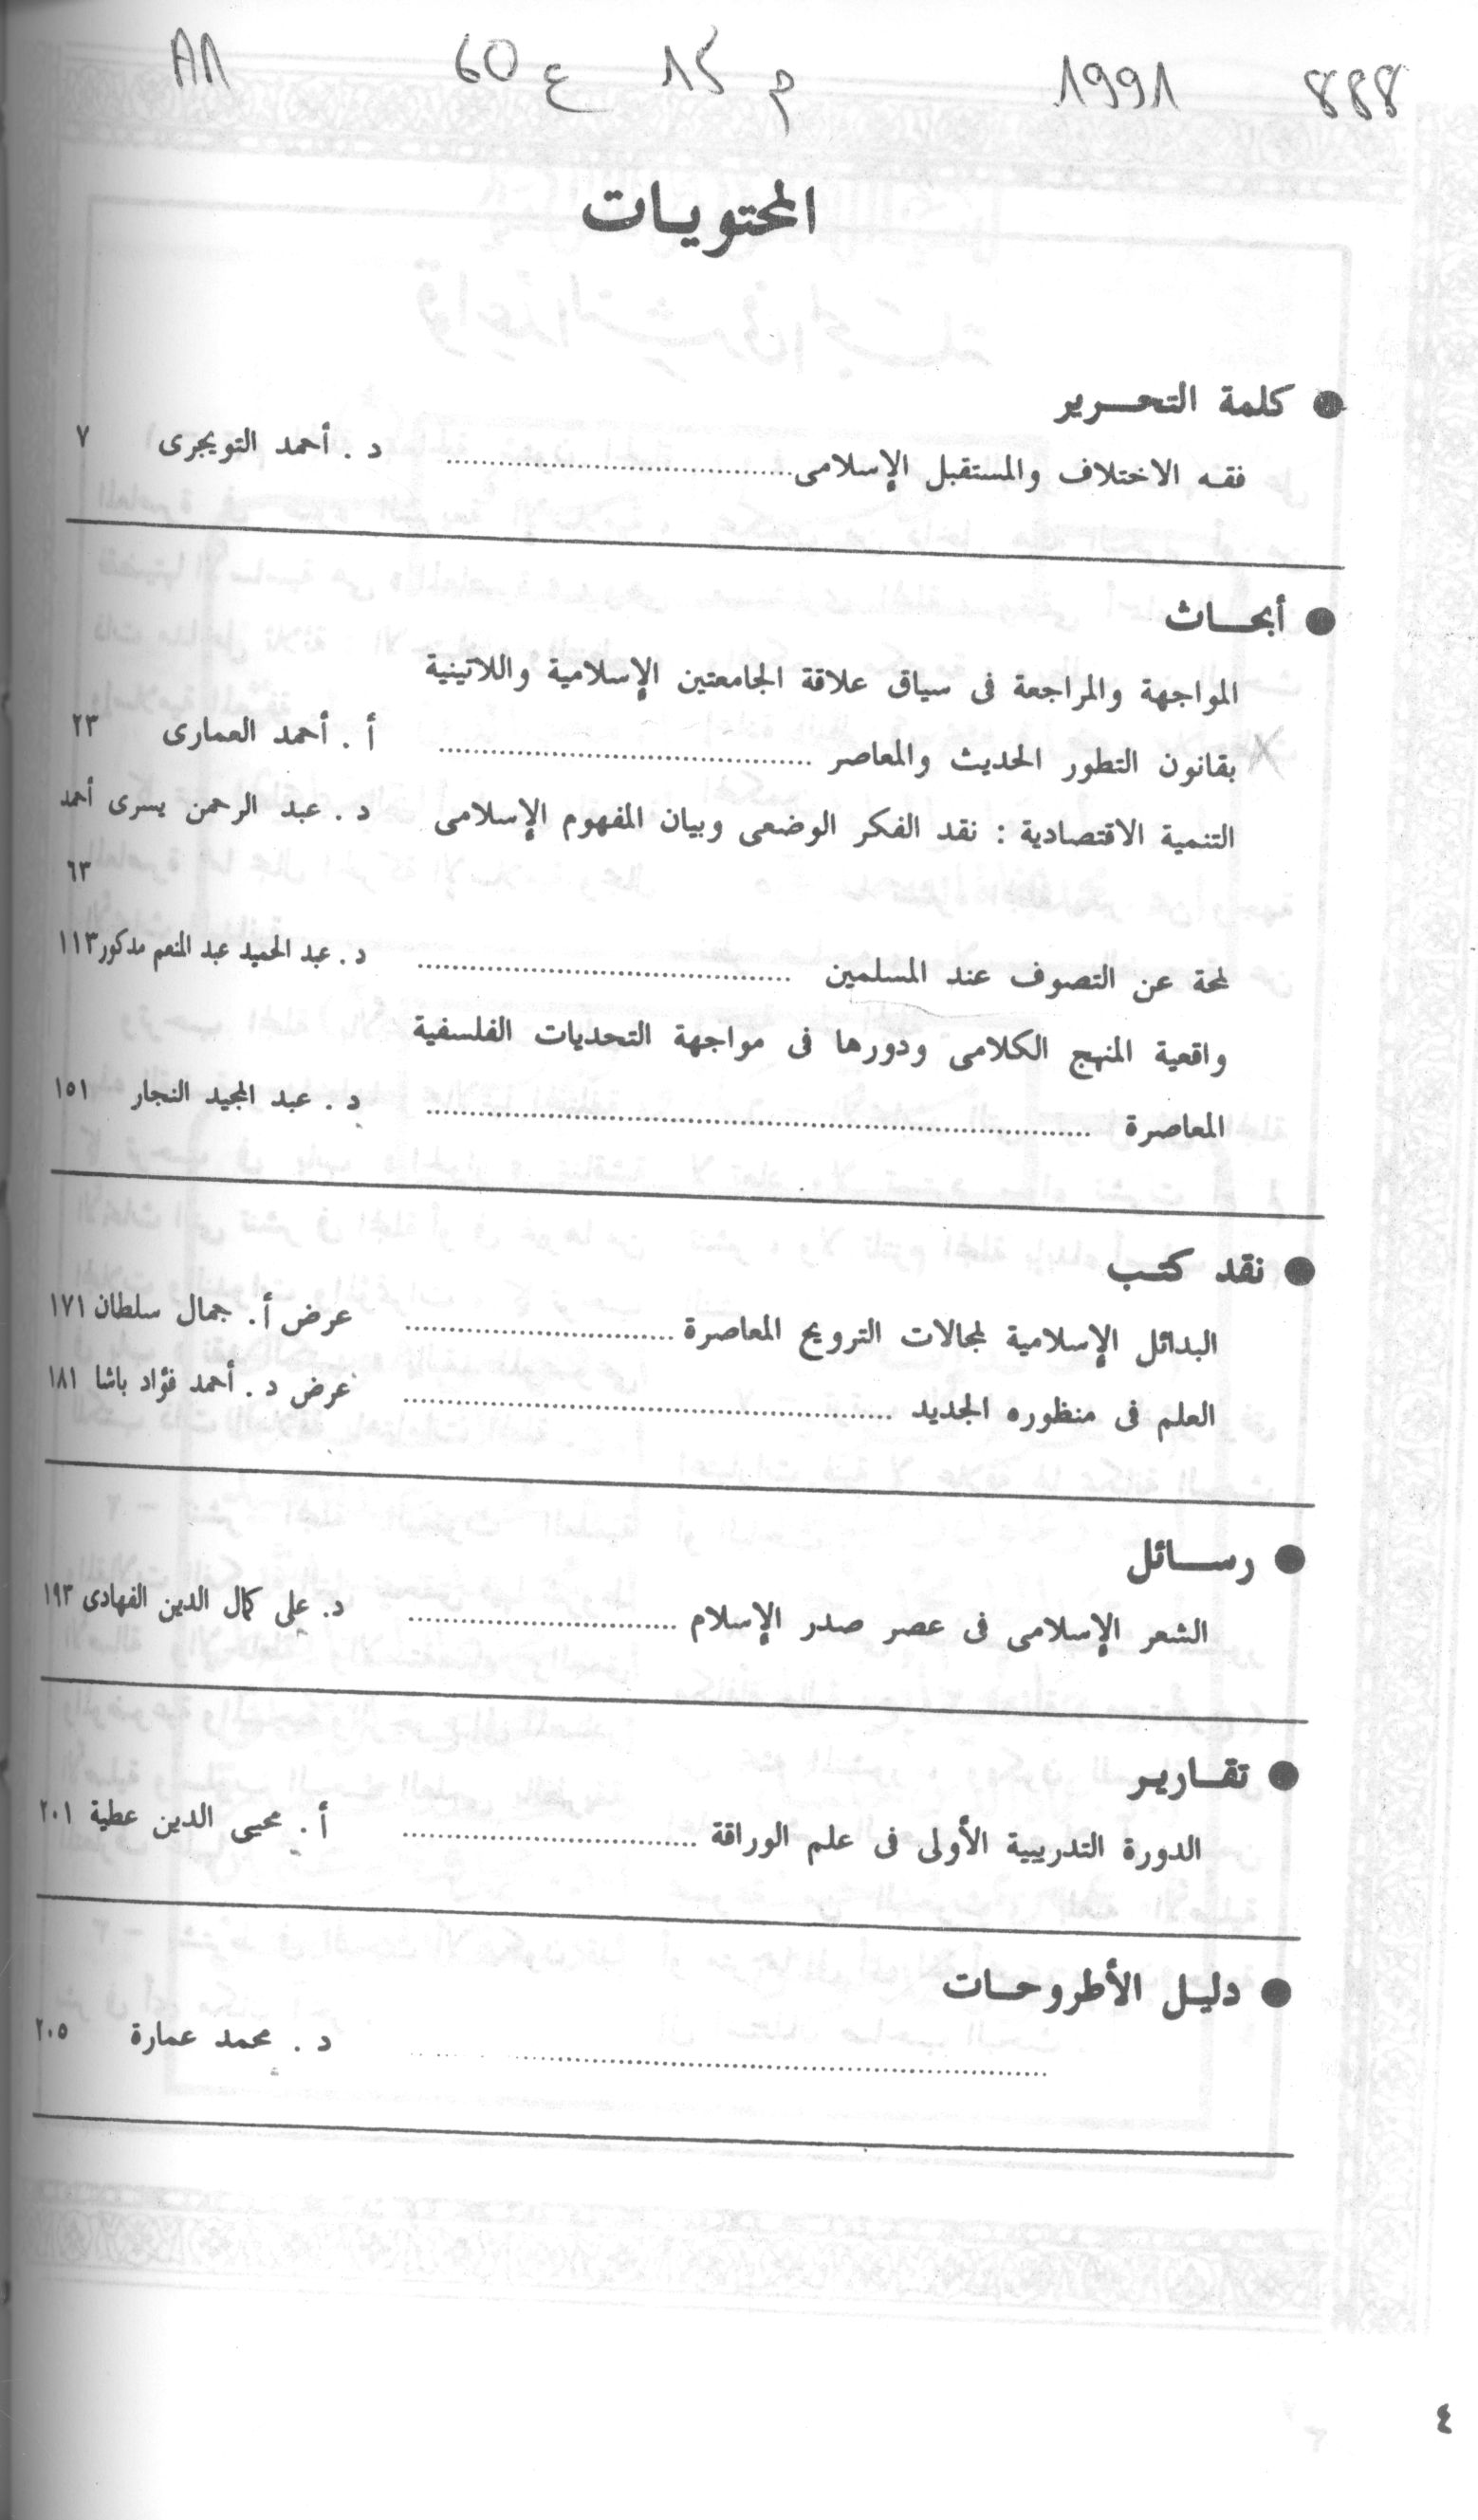 888 1991 م 15 ع 60
المحتويات
● كلمة التحرير
فقه الاختلاف والمستقبل الإسلامى ........ د . أحمد التويجرى ٧
● أبحاث
المواجهة والمراجعة فى سياق علاقة الجامعتين الإسلامية واللاتينية
بقانون التطور الحديث والمعاصر ........ أ . أحمد العمارى ٢٣
التنمية الاقتصادية : نقد الفكر الوضعى وبيان المفهوم الإسلامى د . عبد الرحمن يسرى أحمد
٦٣
لمحة عن التصوف عند المسلمين ........ د . عبد الحميد عبد المنعم مدكور ١١٣
واقعية المنهج الكلامى ودورها فى مواجهة التحديات الفلسفية
المعاصرة ........ د . عبد المجيد النجار ١٥١
● نقد كتب
البدائل الإسلامية لمجالات الترويح المعاصرة ........ عرض أ. جمال سلطان ١٧١
العلم فى منظوره الجديد ........ عرض د . أحمد فؤاد باشا ١٨١
● رسائل
الشعر الإسلامى فى عصر صدر الإسلام ........ د. على كمال الدين الفهادى ١٩٣
● تقارير
الدورة التدريبية الأولى فى علم الوراقة ........ أ . محيى الدين عطية ٢٠١
● دليل الأطروحات
........ د . محمد عمارة ٢٠٥
٤